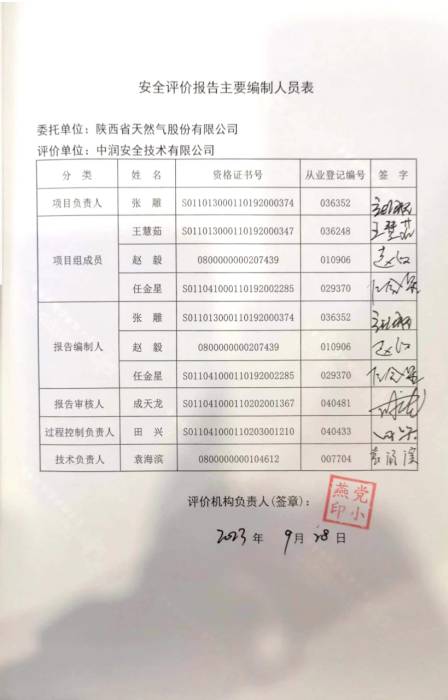 安全评价报告主要编制人员表
委托单位：陕西省天然气股份有限公司
评价单位：中润安全技术有限公司
分 类 姓 名 资格证书号 从业登记编号 签 字
项目负责人 张 雕 S011013000110192000374 036352
项目组成员 王慧茹 S011013000110192000347 036248 王慧茹
赵 毅 0800000000207439 010906 赵毅
任金星 S011041000110192002285 029370 任金星
报告编制人 张 雕 S011013000110192000374 036352
赵 毅 0800000000207439 010906 赵毅
任金星 S011041000110192002285 029370 任金星
报告审核人 成天龙 S011041000110202001367 040481
过程控制负责人 田 兴 S011041000110203001210 040433 田兴
技术负责人 袁海滨 0800000000104612 007704 袁海滨
评价机构负责人(签章)：
党小燕印
2023 年 9 月 28 日